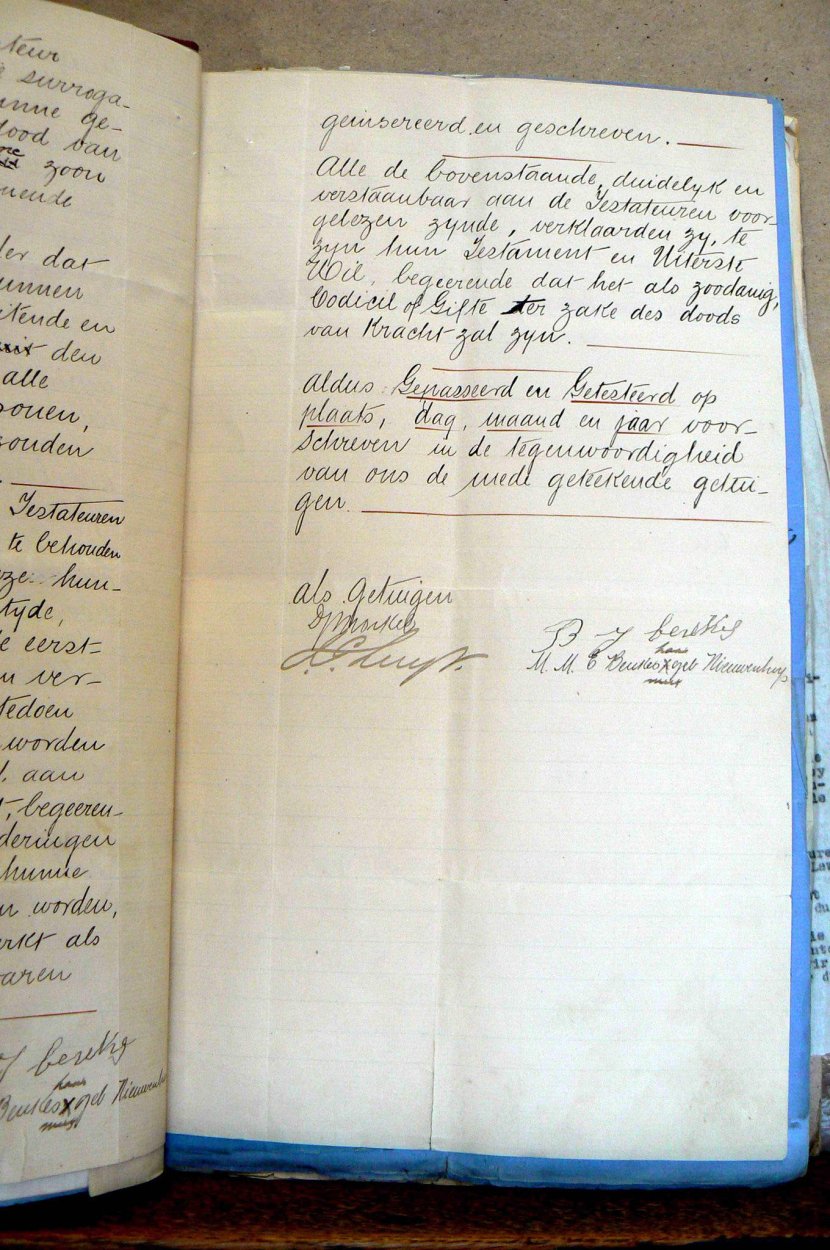 teur
surroga-
nne ge-
dood van
zoon
nende
der dat
unnen
itende en
den
alle
sonen,
zouden
Testateuren
te behouden
oze hun-
tyde,
e eerst-
n ver-
tedoen
worden
, aan
, begeeren-
deringen
hunne
n worden,
rkt als
varen
haar
Beukes X geb Nieuwenhuys
merk
geinsereerd en geschreven.
Alle de bovenstaande, duidelyk en
verstaanbaar aan de Testateuren voor-
gelezen zynde, verklaarden zy, te
zyn hun Testament en Uiterste
Wil, begeerende dat het als zoodanig,
Codicil of Gifte ter zake des doods
van Kracht zal zyn.
Aldus Gepasseerd en Getesteerd op
plaats, dag, maand en jaar voor-
schreven in de tegenwoordigheid
van ons de mede geteekende getui-
gen.
als Getuigen
B J
haar
M. M. C Beukes X geb Nieuwenhuys
merk